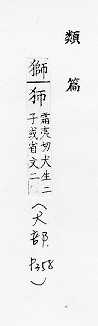 類篇
獅
𤜣霜夷切犬生二
子或省文二(犬部
P.358)